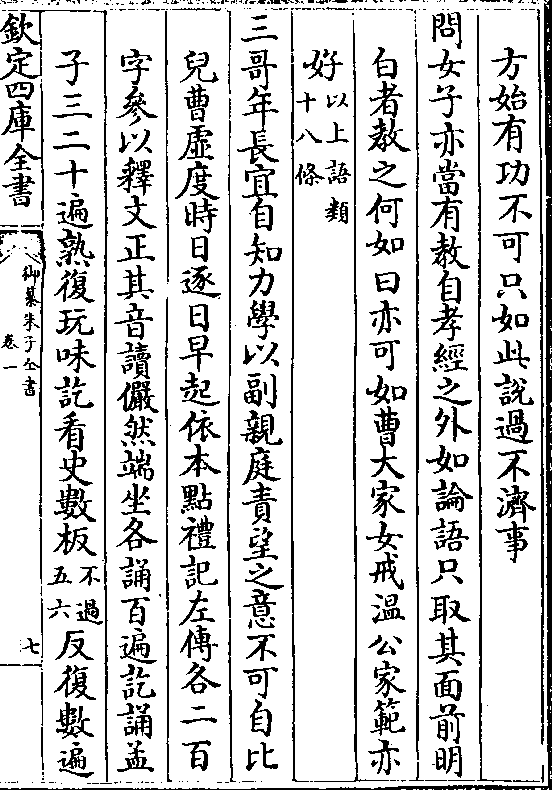 方始有功不可只如此說過不濟事
問女子亦當有教自孝經之外如論語只取其面前明
白者教之何如曰亦可如曹大家女戒溫公家範亦
好以上語類十八條
三哥年長宜自知力學以副親庭責望之意不可自比
兒曹虛度時日逐日早起依本點禮記左傳各二百
字參以釋文正其音讀儼然端坐各誦百遍訖誦孟
子三二十遍熟復玩味訖看史數板不過五六反復數遍
欽定四庫全書
御纂朱子全書
卷一
七